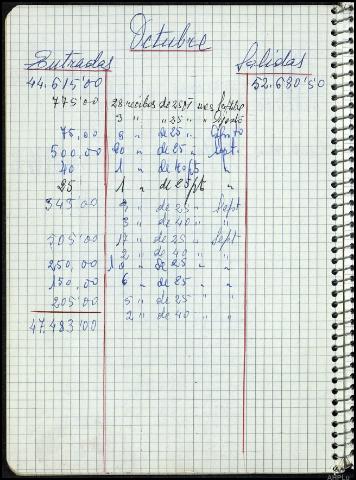 Octubre
Entradas Salidas
44.615'00 52.680'50
775'00 28 recibos de 25 pt mes Septbre
3 " " 25 " Agosto
75,00 3 " de 25 "
500,00 20 " de 25 " Sept.
40 1 " de 40 pt "
25 1 " de 25 pt "
345'00 9 " de 25 " Sept
3 " de 40 " "
505'00 17 " de 25 " Sept
2 " de 40 " "
250,00 10 " de 25 " "
150,00 6 " de 25 " "
205'00 5 " de 25 " "
2 " de 40 " "
47.483'00